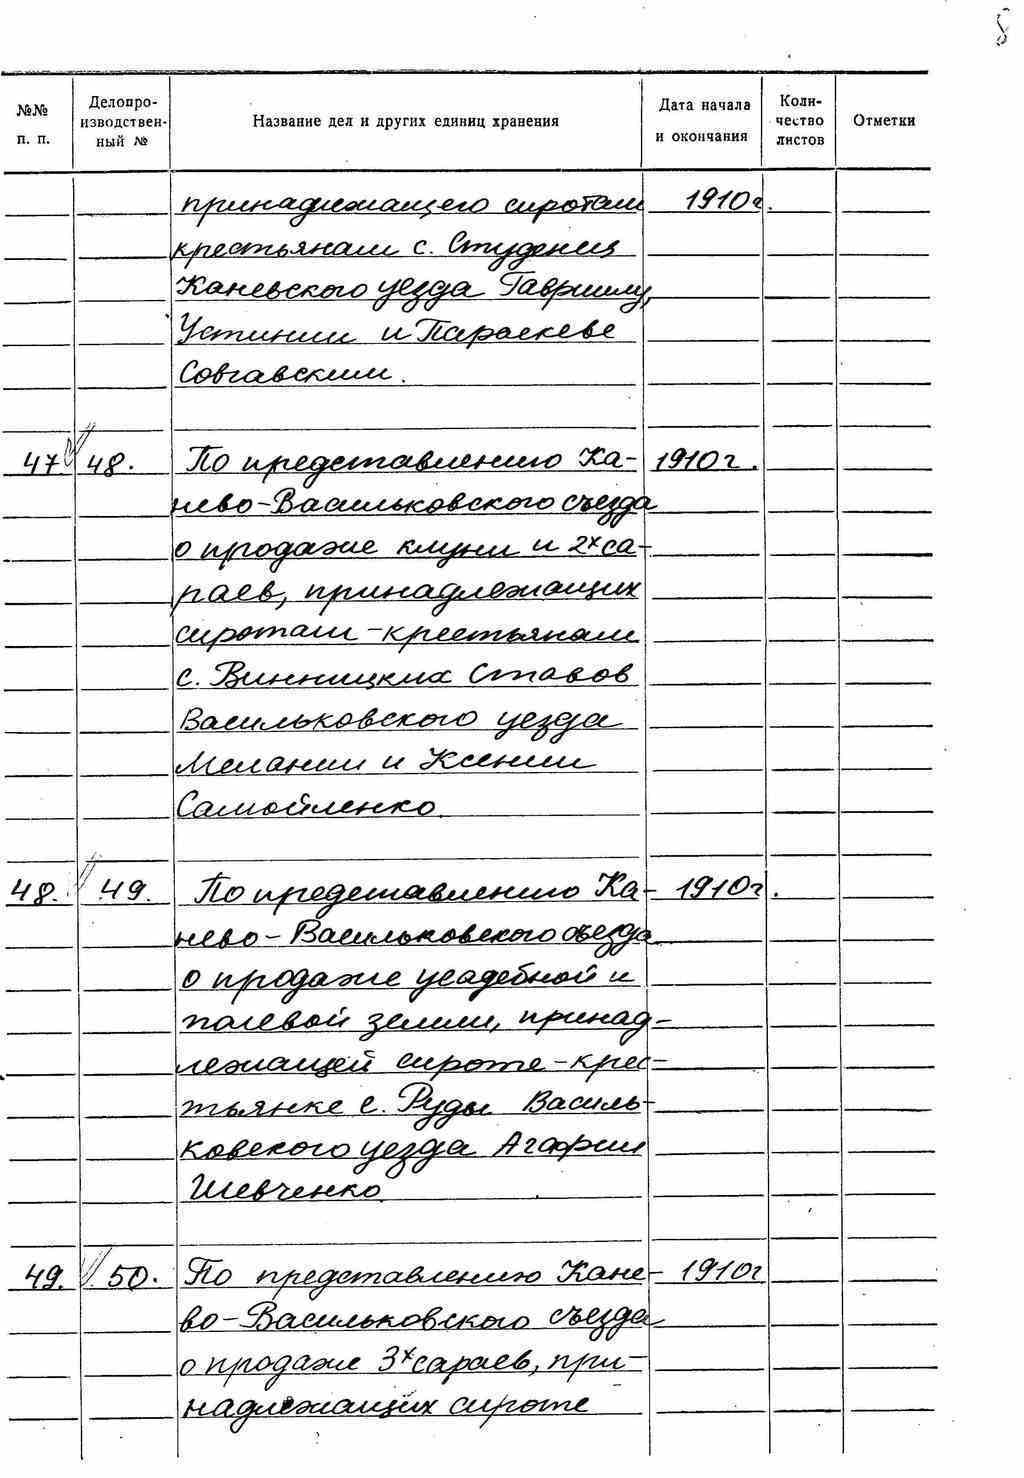 8
№№ п. п. Делопро-изводствен-ный № Название дел и других единиц хранения Дата начала и окончания Коли-чество листов Отметки
принадлежащего сиротам 1910г.
крестьянам с. Студенец
Каневского уезда Гавриилу,
Устинии и Параскеве
Совгавским.
47 48. По представлению Ка- 1910г.
нево-Васильковского съезда
о продаже клуни и 2х са-
раев, принадлежащих
сиротам-крестьянам
с. Винницких Ставов
Васильковского уезда
Мелании и Ксении
Самойленко.
48. 49. По представлению Ка- 1910г.
нево-Васильковского съезда
о продаже усадебной и
полевой земли, принад-
лежащей сироте-крес-
тьянке с. Руды Василь-
ковского уезда Агафии
Шевченко
49. 50. По представлению Кане- 1910г
во-Васильковского съезда
о продаже 3х сараев, при-
надлежащих сироте